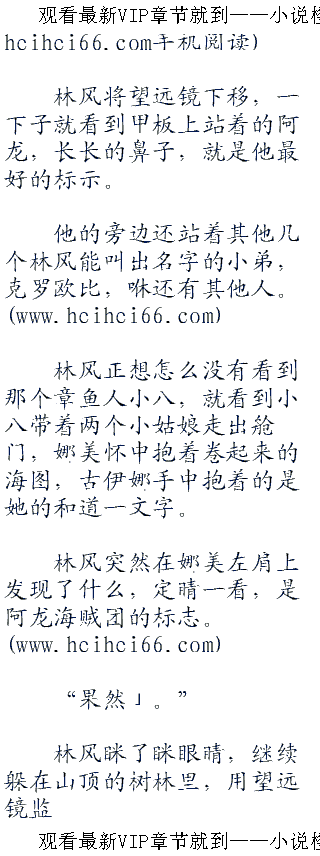 观看最新VIP章节就到——小说
hcihci66.com手机阅读)
林风将望远镜下移，一
下子就看到甲板上站着的阿
龙，长长的鼻子，就是他最
好的标示。
他的旁边还站着其他几
个林风能叫出名字的小弟，
克罗欧比，啾还有其他人。
(www.hcihci66.com)
林风正想怎么没有看到
那个章鱼人小八，就看到小
八带着两个小姑娘走出舱
门，娜美怀中抱着卷起来的
海图，古伊娜手中抱着的是
她的和道一文字。
林风突然在娜美左肩上
发现了什么，定晴一看，是
阿龙海贼团的标志。
(www.hcihci66.com)
“果然」。”
林风眯了眯眼睛，继续
躲在山顶的树林里，用望远
镜监
观看最新VIP章节就到——小说